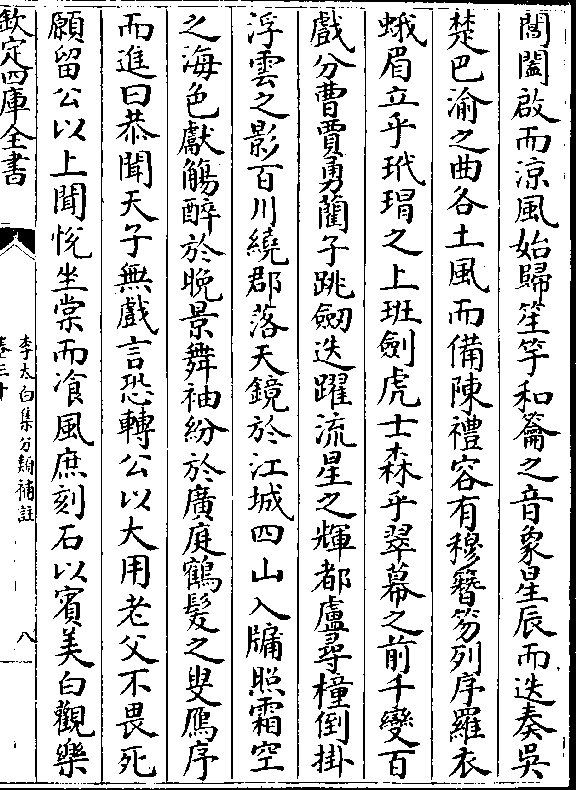 閶闔啟而涼風始歸笙竽和籥之音象星辰而迭奏吳
楚巴渝之曲各土風而備陳禮容有穆簪笏列序羅衣
蛾眉立乎玳瑁之上班劍虎士森乎翠幕之前千變百
戲分曹賈勇藺子跳劒迭躍流星之輝都盧尋橦倒掛
浮雲之影百川繞郡落天鏡於江城四山入牖照霜空
之海色獻觴醉於晚景舞袖紛於廣庭鶴髪之叟鴈序
而進曰恭聞天子無戲言恐轉公以大用老父不畏死
願留公以上聞悅坐棠而飡風庶刻石以賓美白觀樂
欽定四庫全書
李太白集分類補註
卷三十
八